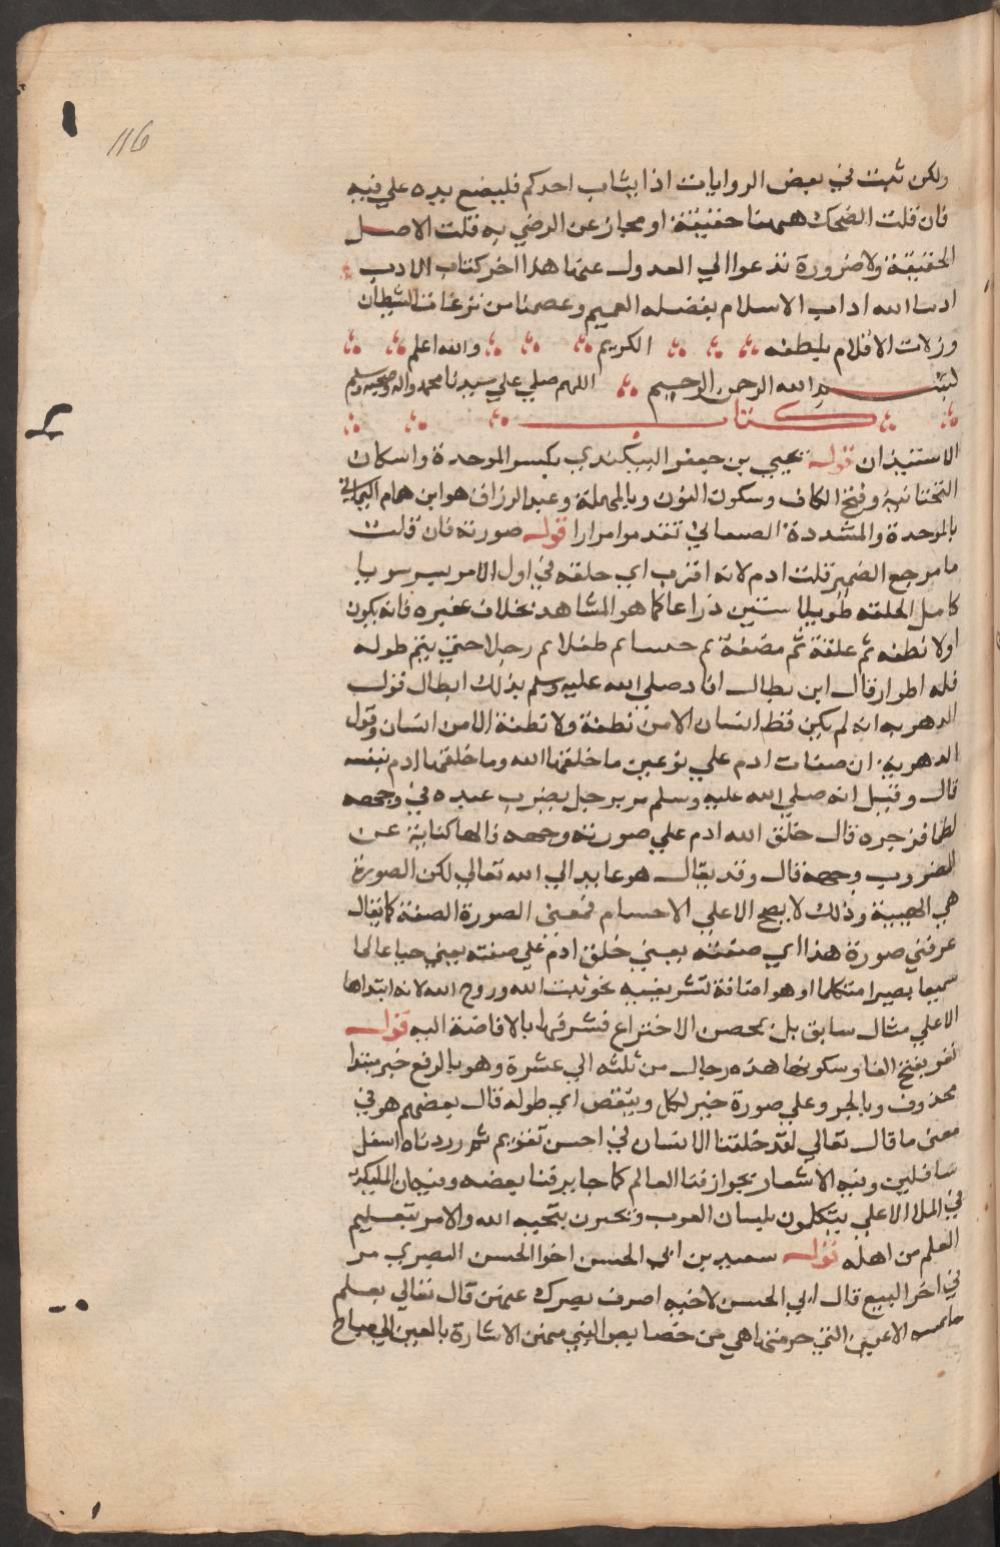 116
ولكن ثبت في بعض الروايات اذا تثاب احدكم فليضع يده علي فيه
فان قلت الضحك ههنا حقيقة او مجاز عن الرضي به قلت الاصل
الحقيقة ولا ضرورة تدعوا الي العدول عنها هذا اخر كتاب الادب
ادبنا الله اداب الاسلام بفضله العميم وعصمنا من نزغات الشيطان
وزلات الاقلام بلطفه الكريم والله اعلم
بسم الله الرحمن الرحيم اللهم صلي علي سيدنا محمد واله وصحبه وسلم
كتاب
الاستيذان قوله يحيي بن جعفر البيكندي بكسر الموحدة واسكان
التحتانية وفتح الكاف وسكون النون وبالمهملة وعبد الرزاق هو ابن همام
بالموحدة والمشددة الصنعاني تقدموا مرارا قوله صورته فان قلت
ما مرجع الضمير قلت ادم لانه اقرب اي خلقه في اول الامر بسر سويا
كامل الخلقه طويلا ستين ذراعا كما هو المشاهد بخلاف غيره فانه يكون
اولا نطفه ثم علقة ثم مضغة ثم جنينا ثم طفلا ثم رجلا حتي يتم طوله
فله اطوار قال ابن بطال افاد صلي الله عليه وسلم بذلك ابطال قول
الدهريه انه لم يكن قط انسان الا من نطفة ولا نطفة الا من انسان وقول
الدهرية ان صفات ادم علي نوعين ما خلقها الله وما خلقها ادم بنفسه
قال وقيل انه صلي الله عليه وسلم مر برجل يضرب عبده في وجهه
لطما فزجره قال خلق الله ادم علي صورته وجهه فالها كناية عن
المضروب وجهه قال وقد يقال هو عايد الي الله تعالي لكن الصورة
هي الهيية وذلك لا يصح الا علي الاجسام فمعني الصورة الصفة كما يقال
عرفني صورة هذا اي صفته يعني خلق ادم علي صفته يعني حيا عالما
سميعا بصيرا متكلما او هو اضافة تشريفيه نحو بيت الله وروح الله لانه ابتداها
الا علي مثال سابق بل بمحض الاختراع فشرفها بالاضافة اليه قوله
نفر بفتح الفا وسكونها هذه رجال من ثلثه الي عشرة وهو بالرفع خبر مبتدا
محذوف وبالجر وعلي صورة خبر لكل وينقص اي طوله قال بعضهم هو في
معني ما قال تعالي لقد خلقنا الانسان في احسن تقويم ثم رددناه اسفل
سافلين وفيه الاشعار بجواز فنا العالم كما جاز فنا بعضه وفيه ان المليكه
في الملا الاعلي يتكلمون بلسان العرب ويحيون بتحيه الله والامر بتعليم
العلم من اهله قوله سعيد بن ابي الحسن اخو الحسن البصري مر
في اخر البيع قال ابي الحسن لاخيه اصرف بصرك عنهن قال تعالي يعلم
خاينه الاعين التي حرمتها هي من خصايص النبي الاشارة بالعين الي مباح